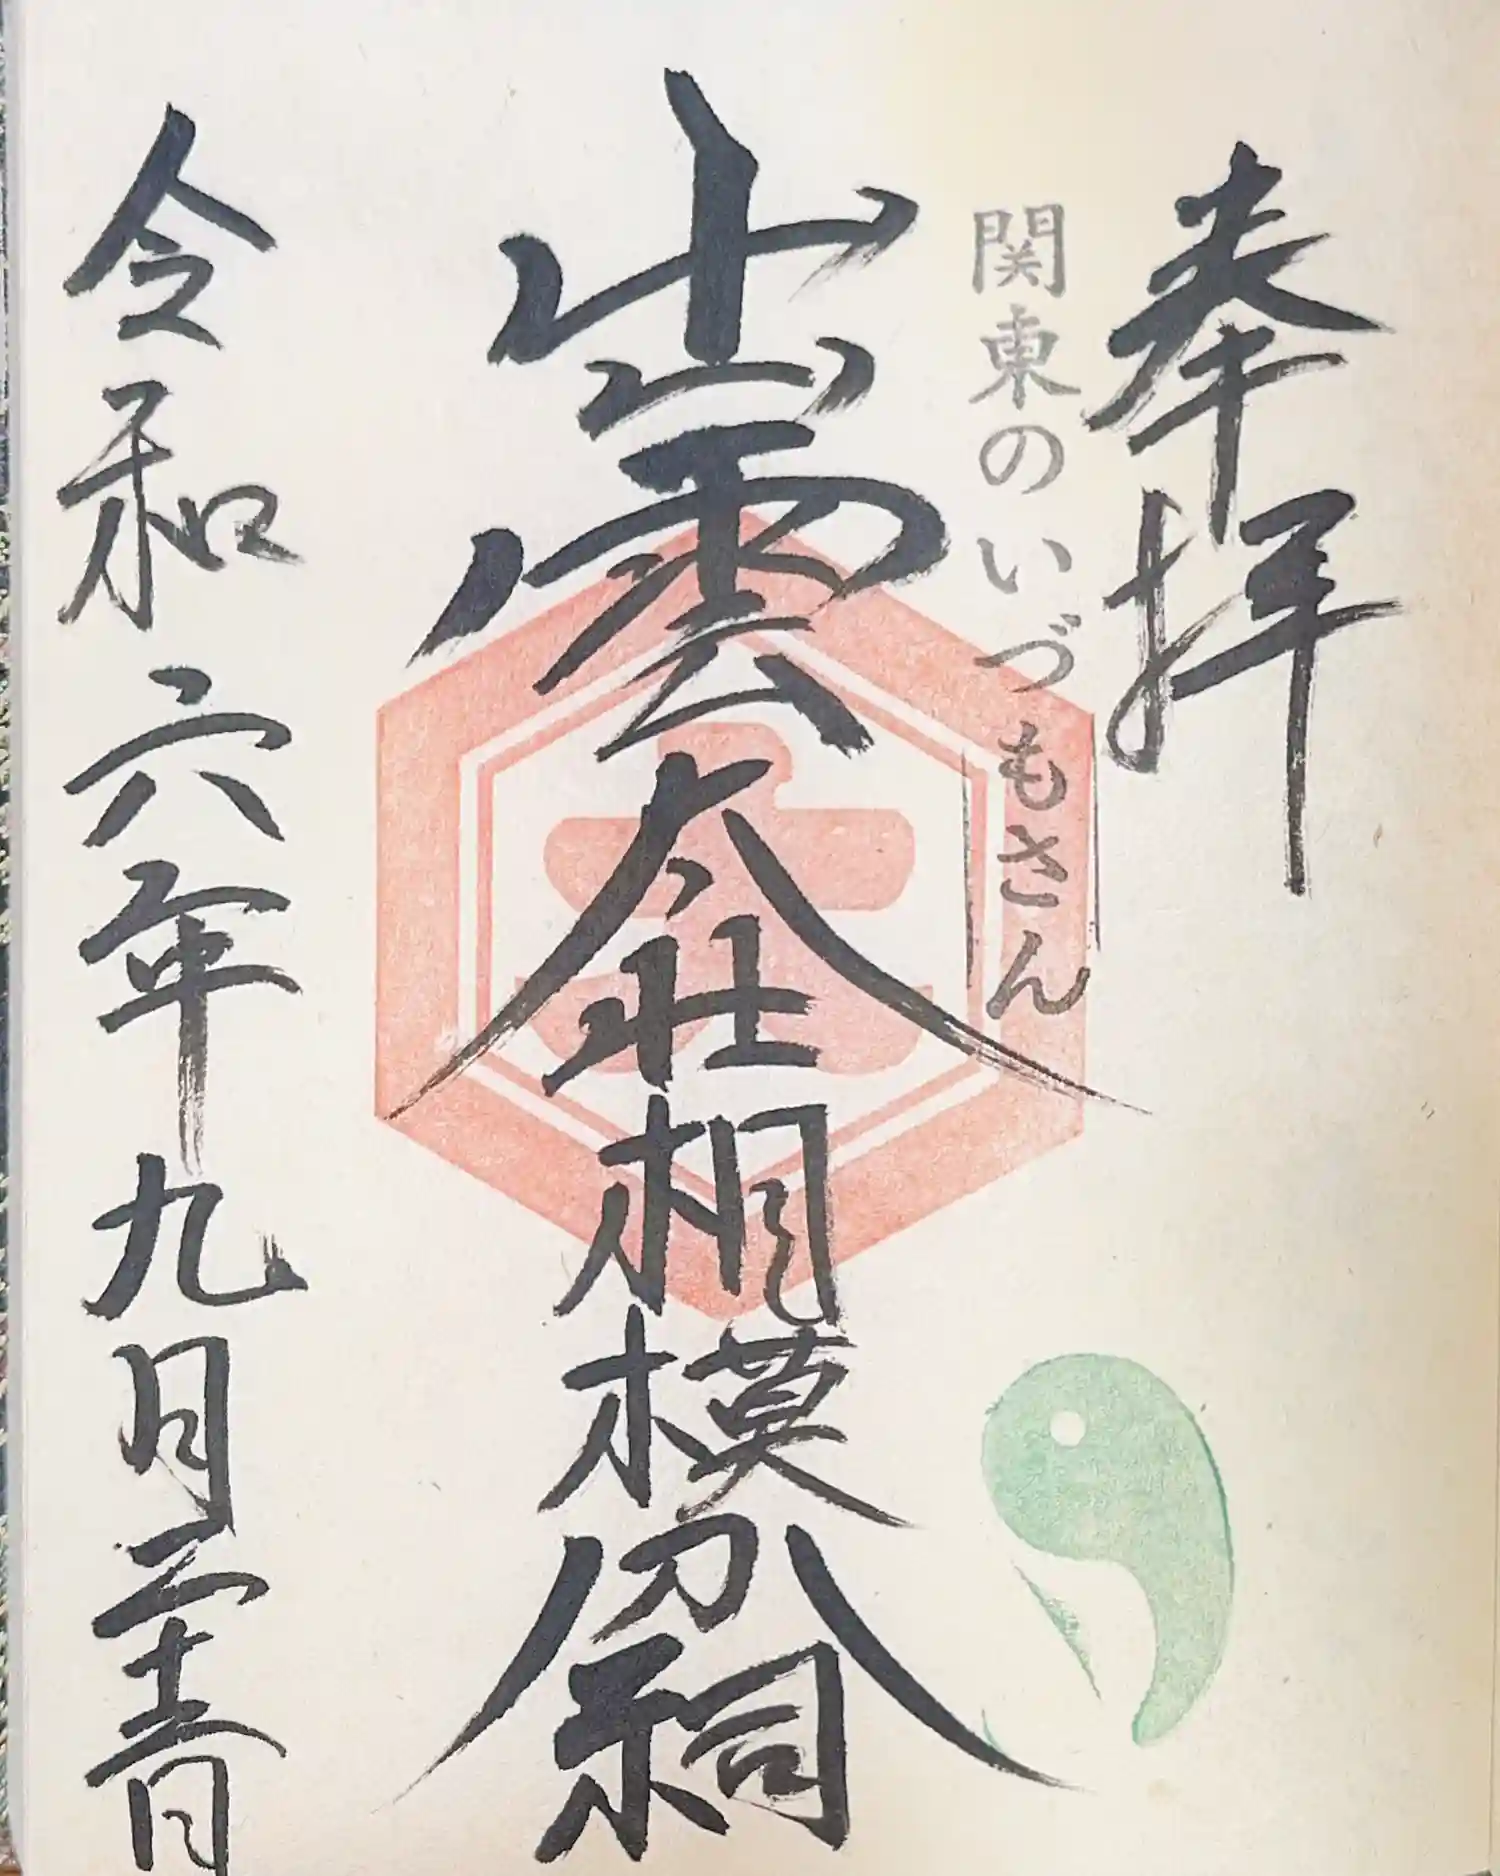 奉拝
関東のいづもさん
出雲大社相模分祠
令和六年九月二十二日